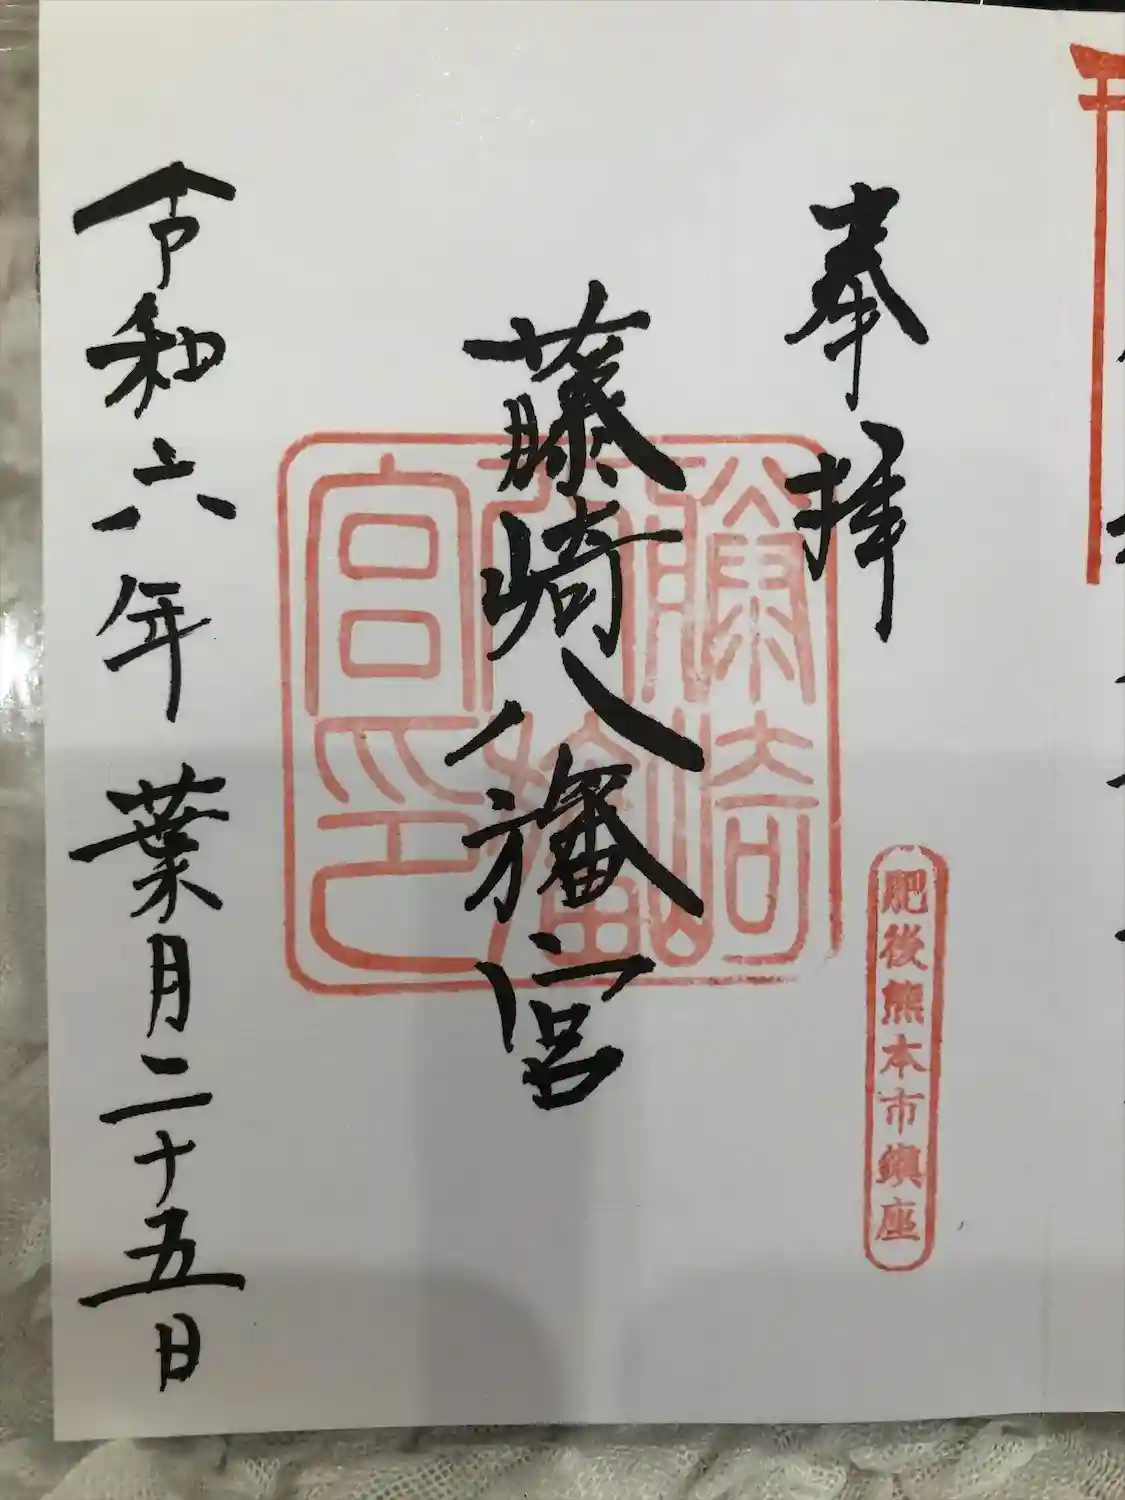 奉拝
肥後熊本市鎮座
藤崎八旛宮
藤崎
八旛
宮印
令和六年葉月二十五日